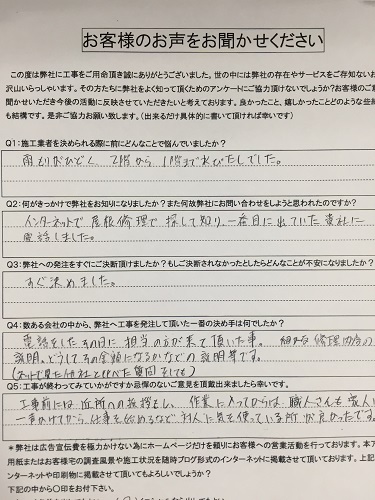 お客様のお声をお聞かせください
この度は弊社に工事をご用命頂き誠にありがとうございました。世の中には弊社の存在やサービスをご存知ないお
沢山いらっしゃいます。その方たちに弊社をよく知って頂くためのアンケートにご協力頂けないでしょうか?お客様のご意
聞かせいただき今後の活動に反映させていただきたいと考えております。良かったこと、嬉しかったことどのような些細
も結構です。是非ご協力お願い致します。(出来るだけ具体的に書いて頂ければ幸いです)
Q1:施工業者を決められる際に前にどんなことで悩んでいましたか?
雨もりがひどく、2階から1階まで水びたしでした。
Q2:何がきっかけで弊社をお知りになりましたか?また何故弊社にお問い合わせをしようと思われたのですか?
インターネットで屋根修理で探して知り、一番目に出ていた貴社に
電話しました。
Q3:弊社への発注をすぐにご決断頂けましたか?もしご決断されなかったとしたらどんなことが不安になりましたか?
すぐ決めました。
Q4:数ある会社の中から、弊社へ工事を発注して頂いた一番の決め手は何でしたか?
電話をしたその日に担当の方が来て頂いた事。細かな修理内容の
説明。どうしてその金額になるかなどの説明等です。
(ネットで見た他社と比べた質問をしても)
Q5:工事が終わってみていかがですか忌憚のないご意見を頂戴出来ましたら幸いです。
工事前には近所への挨拶をし、作業に入ってからは、職人さんも家人に
一声かけてから仕事を始めるなど対人に気を使っている所が良かったです。
*弊社は広告宣伝費を極力かけない為にホームページだけを頼りにお客様への営業活動を行っております。本ア
用紙またはお客様宅の調査風景や施工状況を随時ブログ形式のインターネットに掲載させて頂いております。上記
インターネットや印刷物に掲載させて頂いてもよろしいでしょうか?
下記の中から○印をお付下さい。